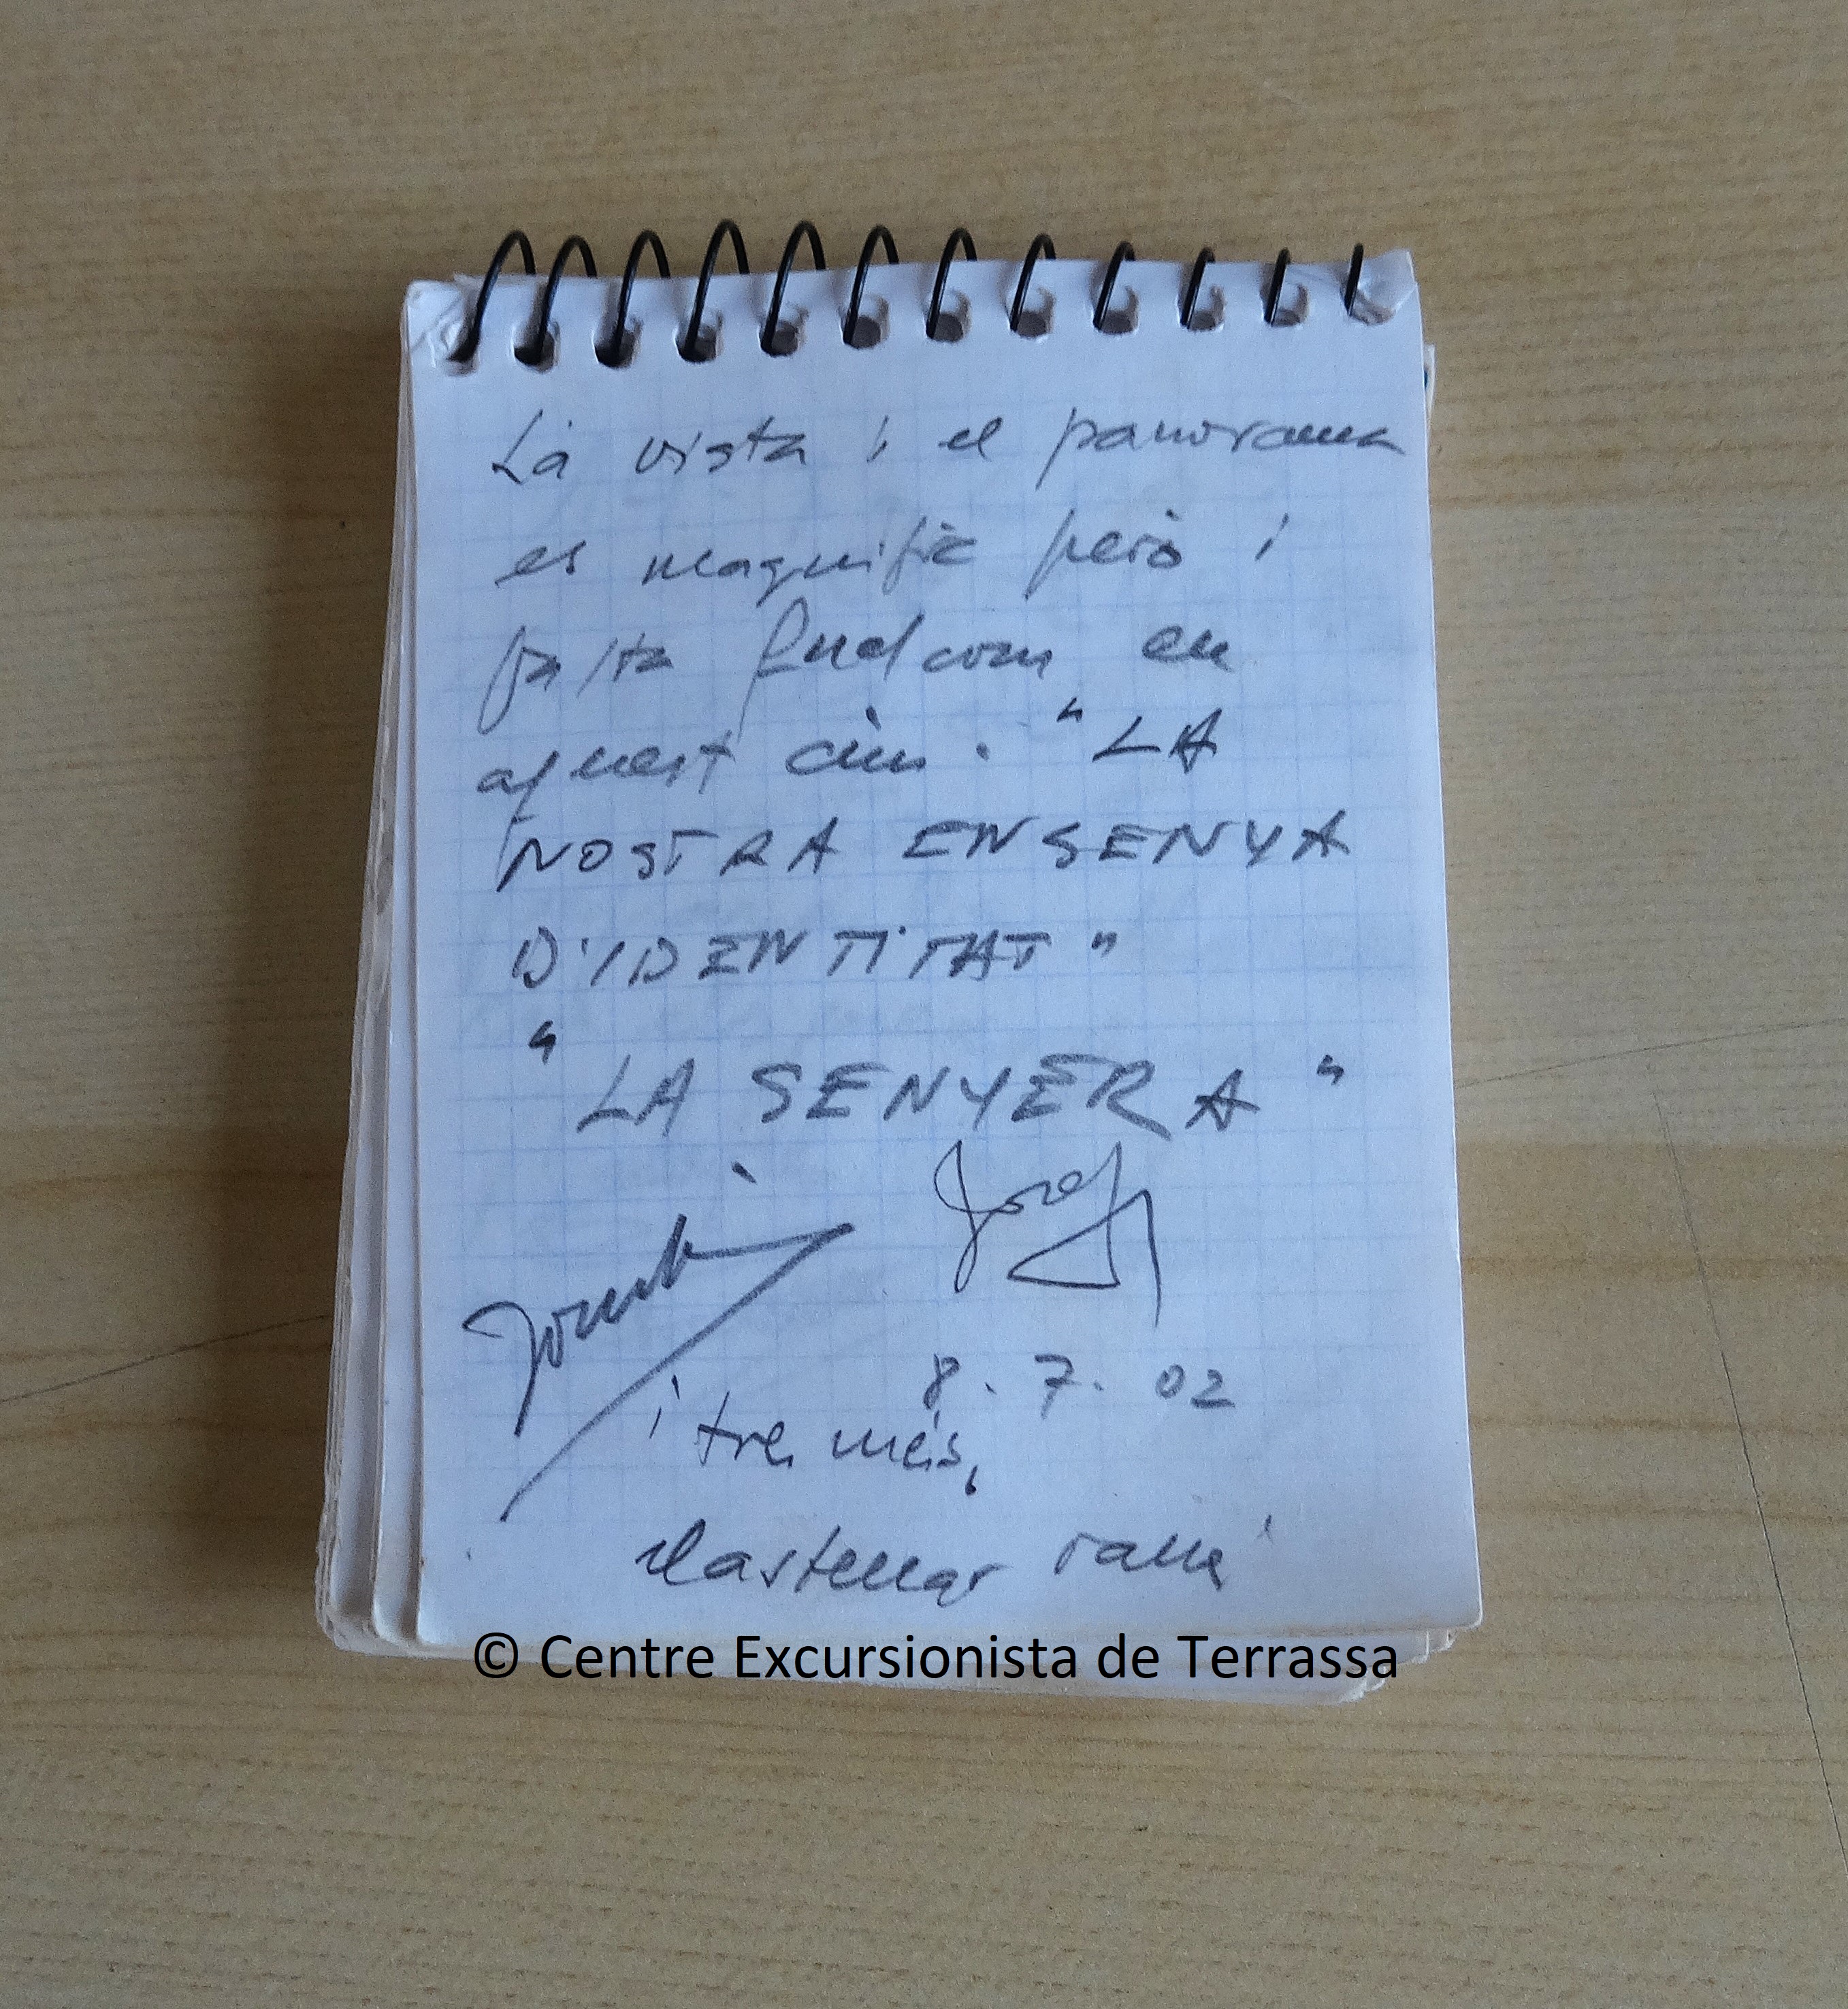 La vista i el panorama
es magnific però i
falta quelcom en
aquest cim. "LA
NOSTRA ENSENYA
D'IDENTITAT"
"LA SENYERA"
Josep
8. 7. 02
i tres més,
© Centre Excursionista de Terrassa